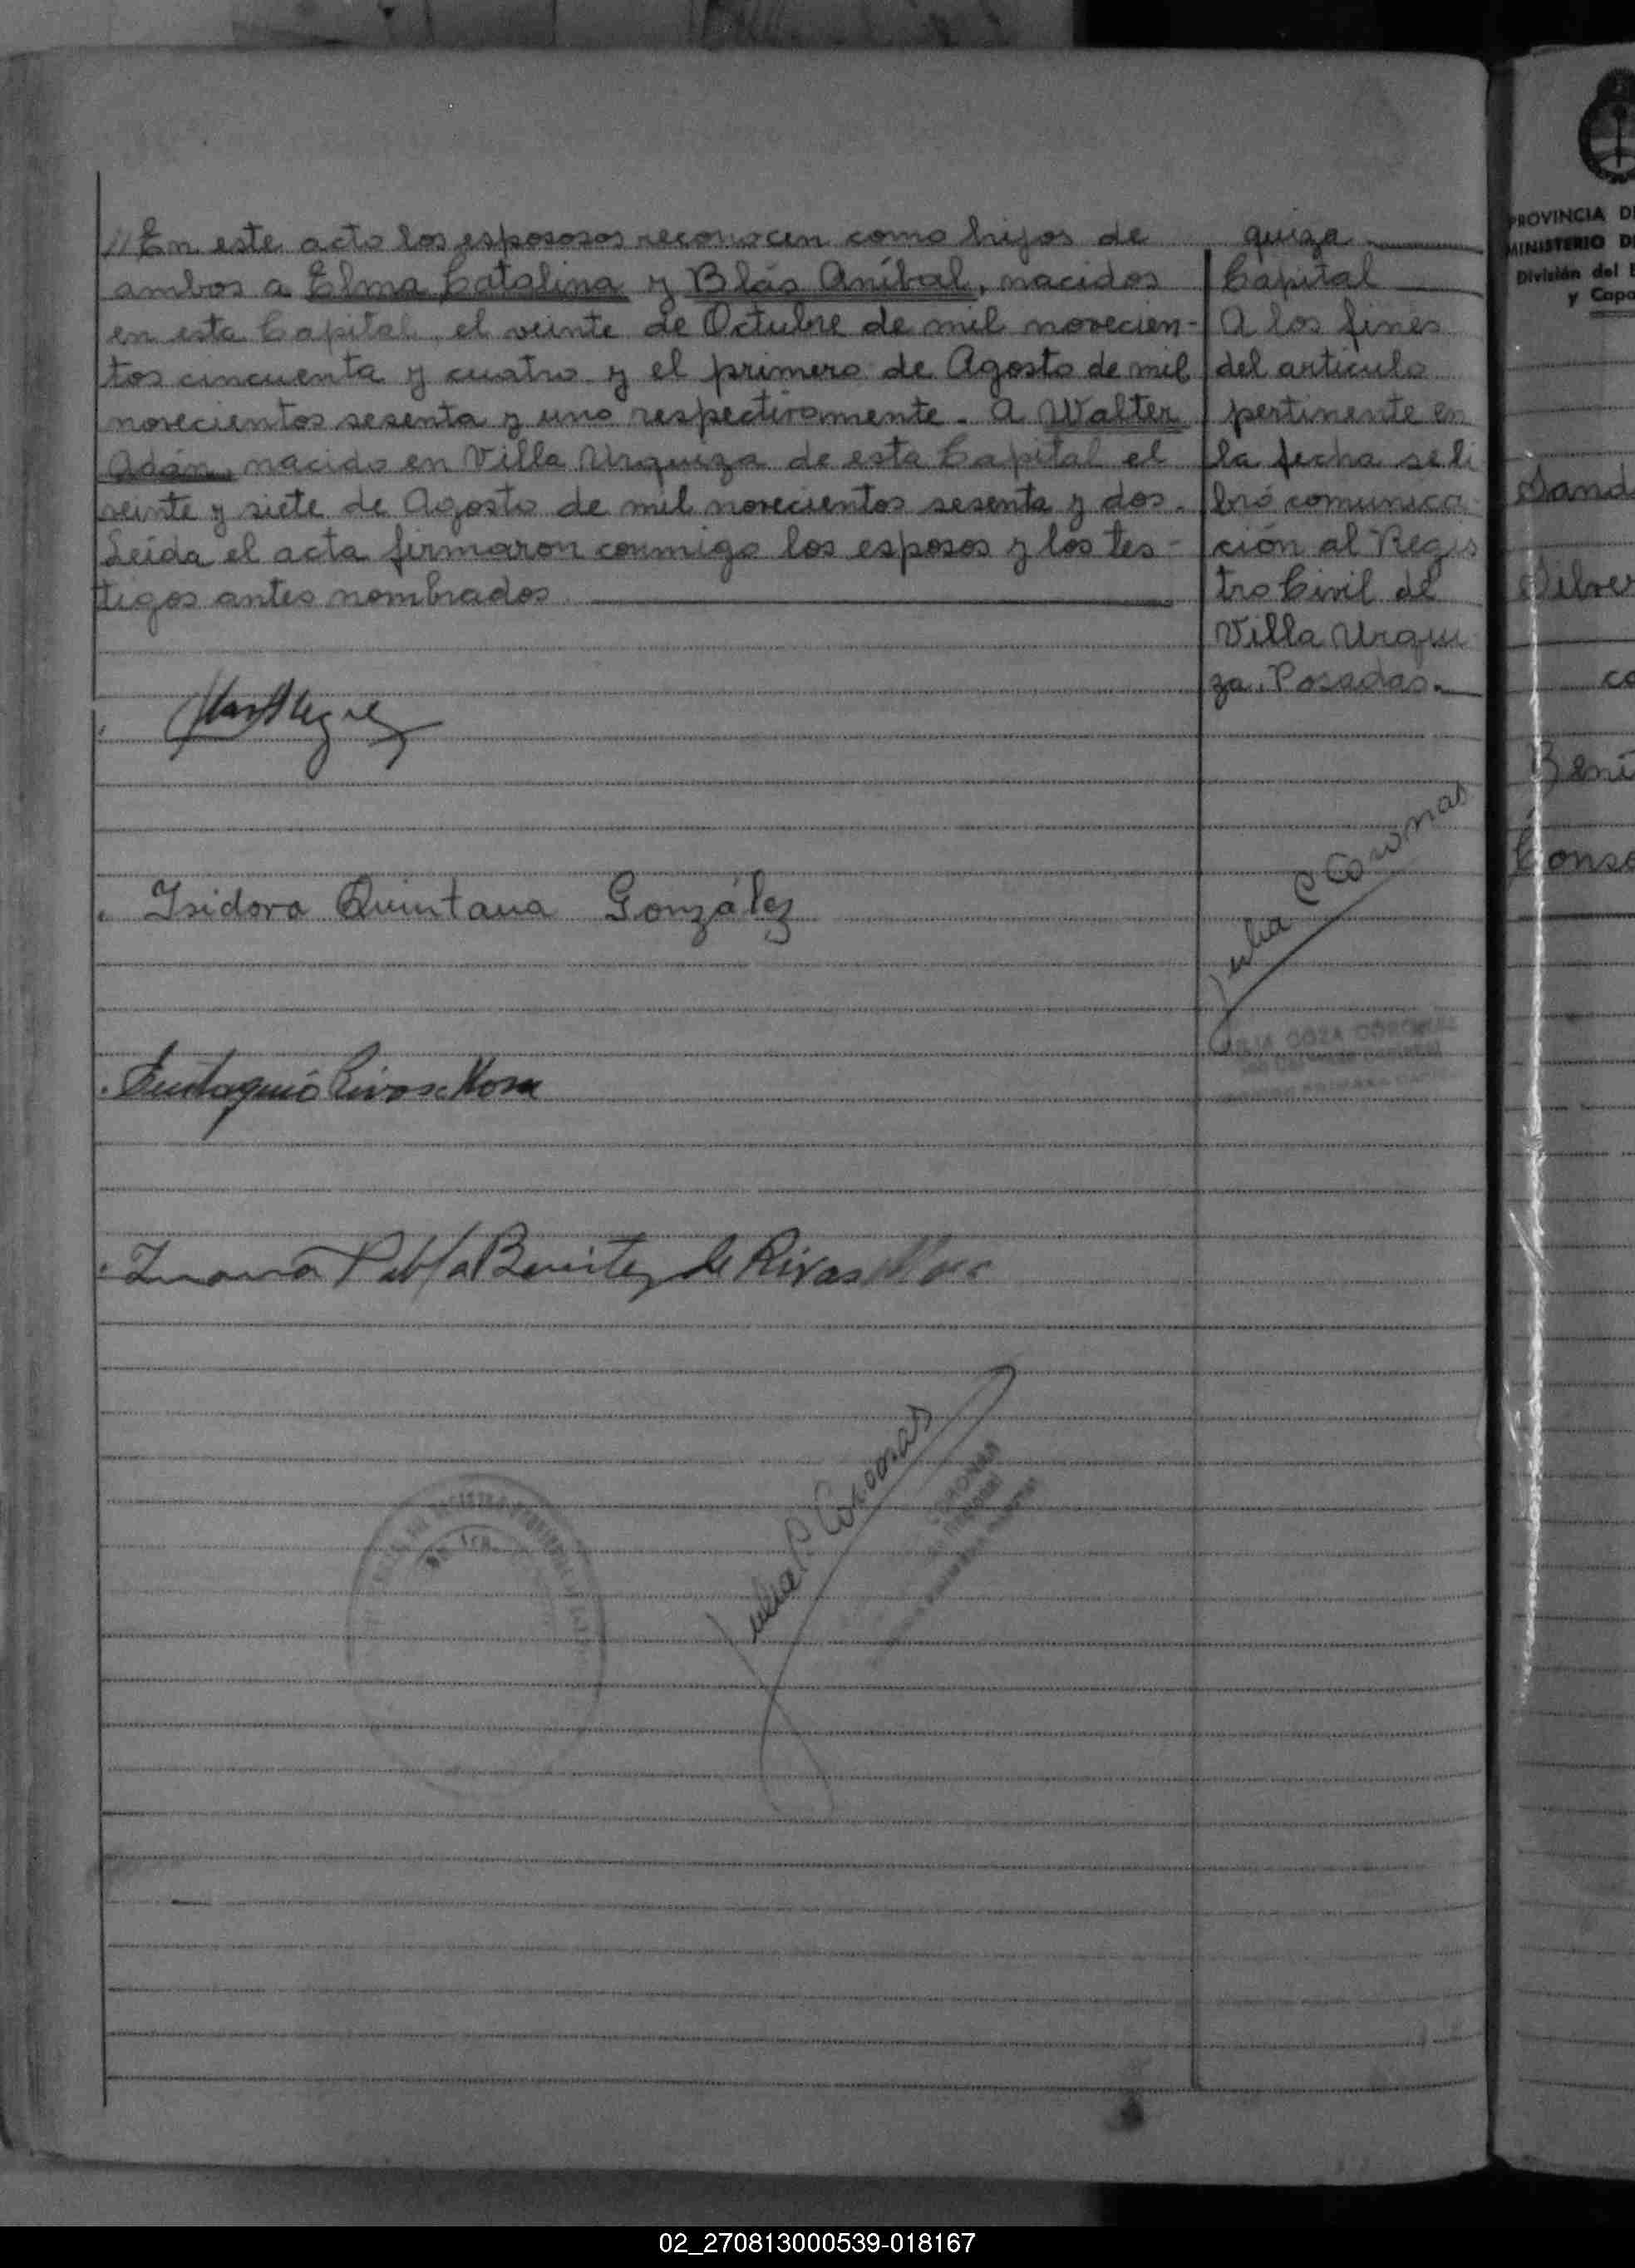 // En este acto los espososos reconocen como hijos de
ambos a Elma Catalina y Blás Aníbal, nacidos
en esta Capital, el veinte de Octubre de mil novecien-
tos cincuenta y cuatro y el primero de Agosto de mil
novecientos sesenta y uno respectivamente. A Walter
Adán, nacido en Villa Urquiza de esta Capital el
veinte y siete de Agosto de mil novecientos sesenta y dos.
Leída el acta firmaron conmigo los esposos y los tes-
tigos antes nombrados
quiza
Capital
A los fines
del artículo
pertinente en
la fecha se li
bró comunica
ción al Regis
tro Civil de
Villa Urqui
za. Posadas.
Isidora Quintana González
Eustaquio Rivas Mora
Juana Pabla Benitez de Rivas Mora
Julia C Coronas
Julia C Coronas
PROVINCIA D
MINISTERIO D
División del
y Capa
Sand
Silver
co
Bení
Conse
02_270813000539-018167